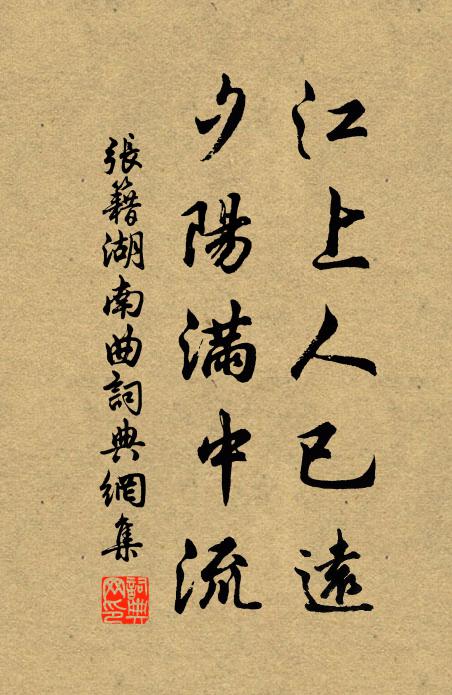 江上人已遠
夕陽滿中流
張籍湖南曲詞典網集
詞典網印